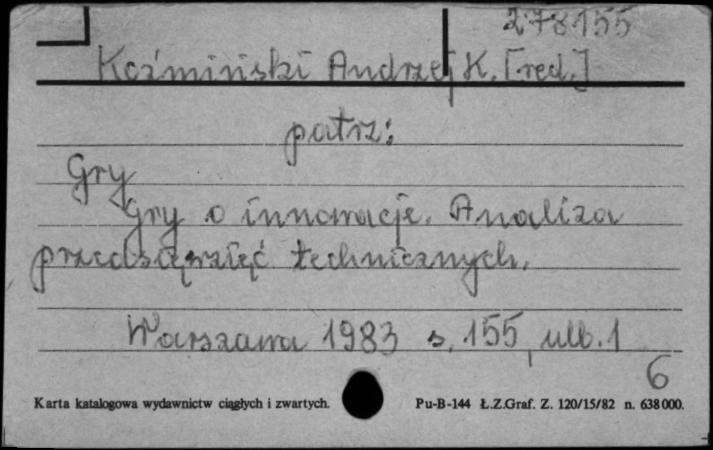 278155
Koźmiński Andrzej K. [red.]
patrz:
Gry
Gry o innowacje. Analiza
przedsięwzięć technicznych.
Warszawa 1983 s. 155, ulb. 1
6
Karta katalogowa wydawnictw ciągłych i zwartych. Pu-B-144 Ł.Z.Graf. Z. 120/15/82 n. 638000.